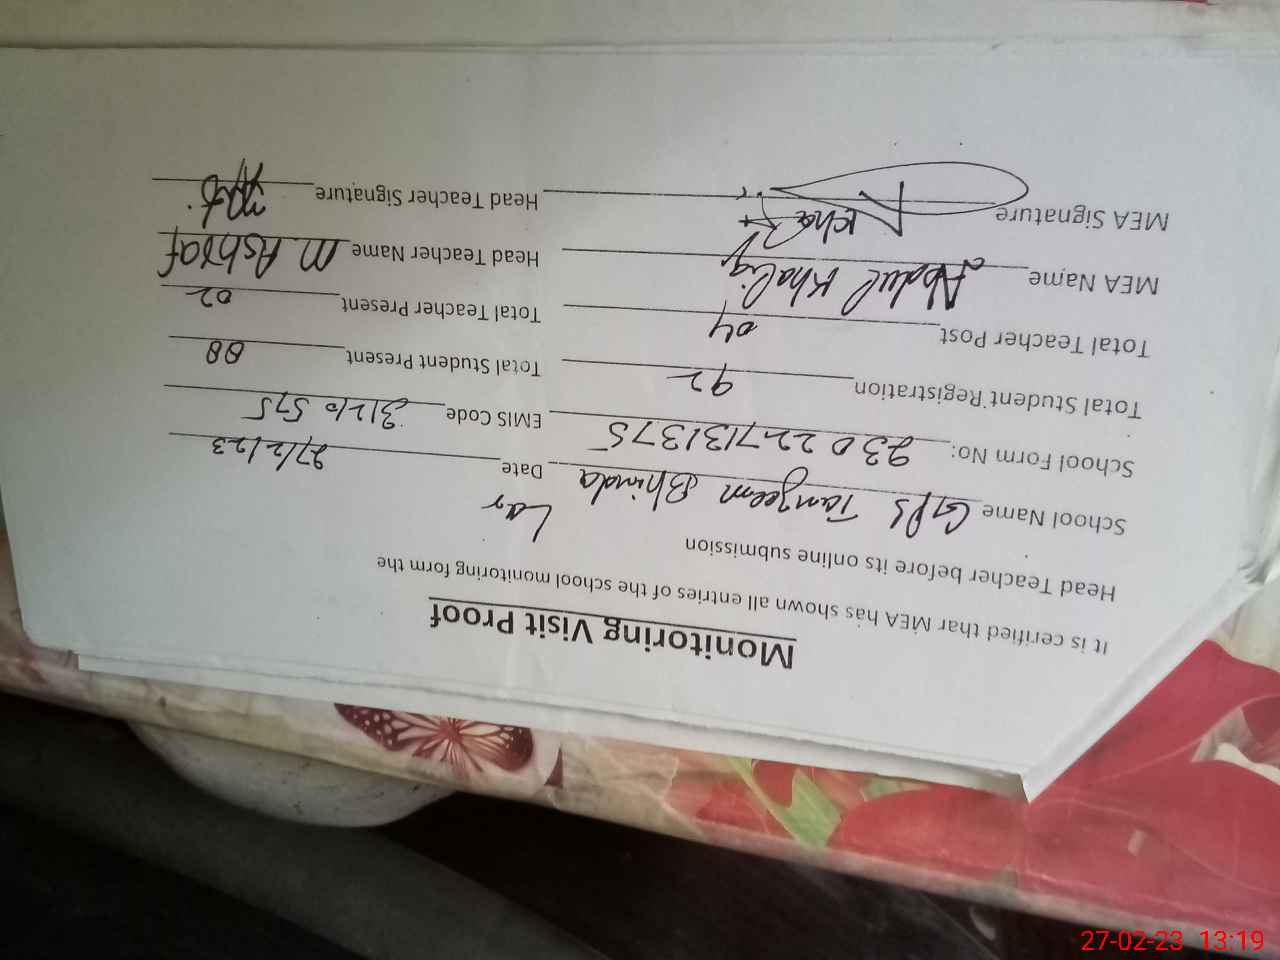 Monitoring Visit Proof
It is cerified thar MEA has shown all entries of the school monitoring form the
Head Teacher before its online submission
School Name GPS Tanzeem Bhinda Lar Date 27/2/23
School Form No: 230227131375 EMIS Code 31210575
Total Student Registration 92 Total Student Present 88
Total Teacher Post 04 Total Teacher Present 02
MEA Name Abdul Khaliq Head Teacher Name M. Ashraf
MEA Signature Head Teacher Signature
27-02-23 13:19